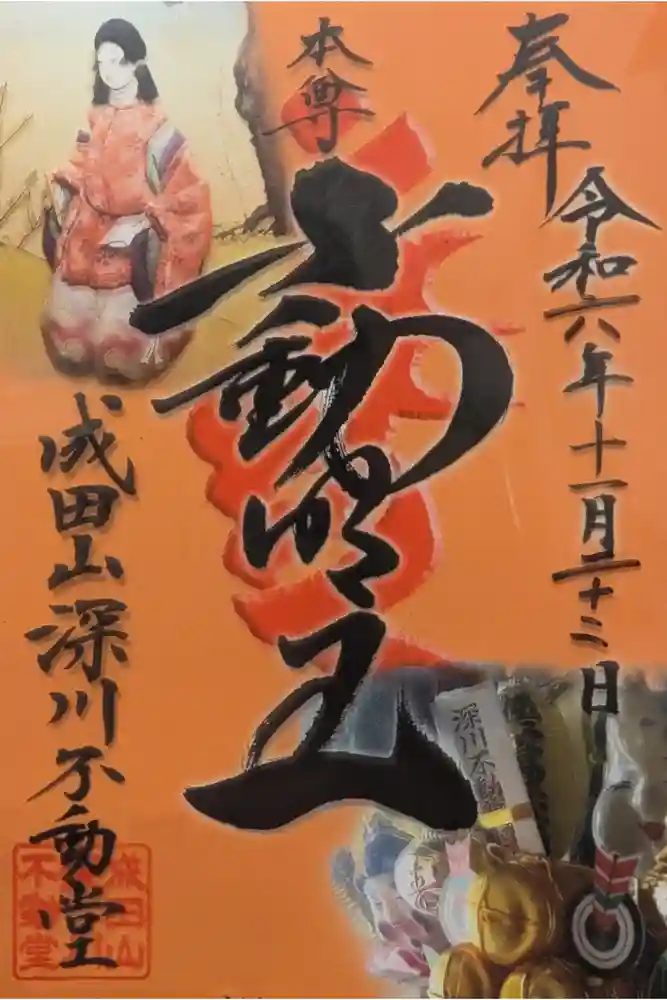 奉拝
令和六年十一月二十三日
本尊
不動明王
成田山深川不動堂
成田山
不動堂
深川不動